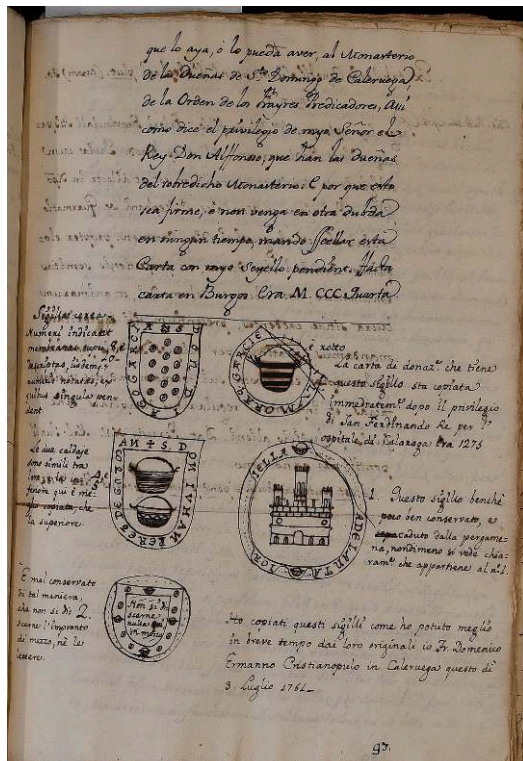 que lo aya, o lo pueda aver, al Monasterio
de la Dueñas de Sto Domingo de Caleruega,
de la Orden de los Frayres Predicadores, Assi
como dice el privilegio de myo Señor el
Rey Don Alffonso, que han las dueñas
del sobredicho Monasterio: E por que esto
sea firme, e non venga en otra dubda
en ningun tiempo, mando Seellar esta
Carta con myo Seyello pendient. Ffacta
carta en Burgos. Era M. CCC Quarta
Sigilla cerea
Numeri indicant
membranas
descriptas, iisdem
numeris notatas, ex
quibus singula pen-
dent.
IAGO GARCI
DON D
GARCIE
è rotto
La carta di donaz.e che tiene
questo sigillo sta copiata
immediatem.e dopo il privilegio
di San Ferdinando Re per
ospitale di Era 1275
Le due caldaje
sono simili tra
ma la in-
feriore qui è me-
glio copiata, che
la superiore.
ON IVHAN PEREZ DE
ADELANTA
1. Questo sigillo benchè
poco ben conservato, e
caduto dalla pergame-
na, nondimeno si vede chia-
ram.e che appartiene al n.o 1.
È mal conservato
di tal maniera,
che non si di-
scerne l'impronto
di mezzo, nè le
lettere.
2.
Non si di-
scerne
nulla qui
in mezzo
Ho copiati questi sigilli come ho potuto meglio
in breve tempo dai loro originali io Fr. Domenico
Ermanno Cristianopulo in Caleruega questo dì
3. Luglio 1761_
97.